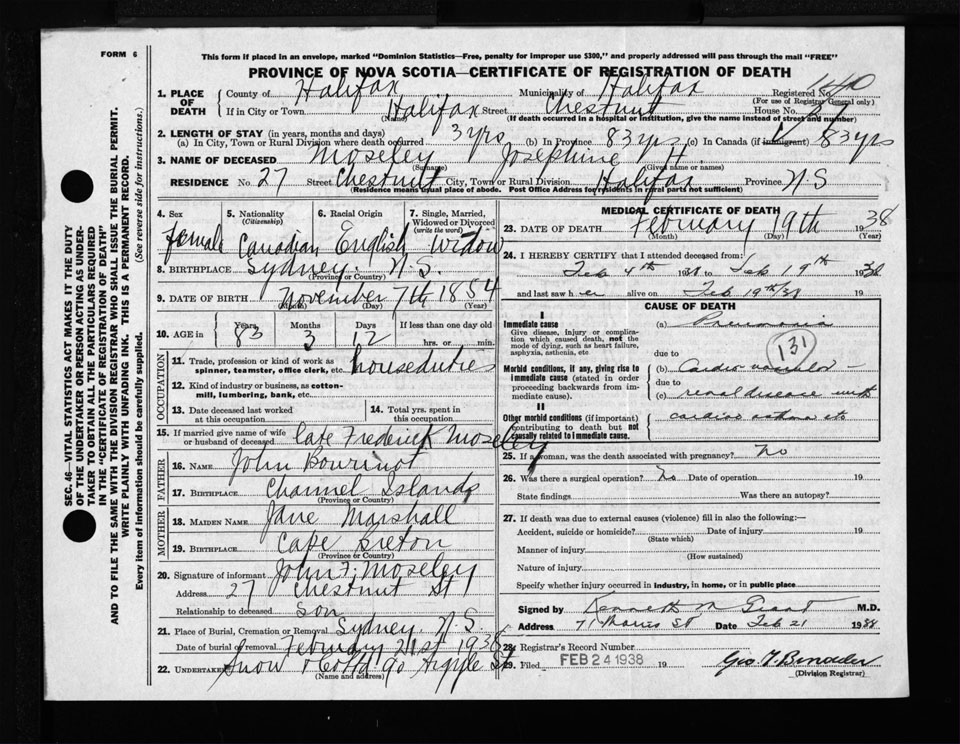 FORM 6
This form if placed in an envelope, marked "Dominion Statistics—Free, penalty for improper use $300," and properly addressed will pass through the mail "FREE"
PROVINCE OF NOVA SCOTIA—CERTIFICATE OF REGISTRATION OF DEATH
1. PLACE OF DEATH
County of Halifax Municipality of Halifax Registered No.
(For use of Registrar General only)
If in City or Town Halifax Street Chestnut House No. 27
(Name) (If death occurred in a hospital or institution, give the name instead of street and number)
2. LENGTH OF STAY (in years, months and days)
(a) In City, Town or Rural Division where death occurred 3 yrs (b) In Province 83 yrs (c) In Canada (if immigrant) 83 yrs
3. NAME OF DECEASED Moseley Josephine H.
(Surname) (Given name or names)
RESIDENCE No. 27 Street Chestnut City, Town or Rural Division Halifax Province N S
(Residence means usual place of abode. Post Office Address for residents in rural parts not sufficient)
4. Sex female
5. Nationality (Citizenship) Canadian
6. Racial Origin English
7. Single, Married, Widowed or Divorced (write the word) widow
8. BIRTHPLACE Sydney. N.S.
(Province or Country)
9. DATE OF BIRTH November 7th 1854
(Month) (Day) (Year)
10. AGE in Years 83 Months 3 Days 12 If less than one day old
hrs. or min.
OCCUPATION
11. Trade, profession or kind of work as spinner, teamster, office clerk, etc. houseduties
12. Kind of industry or business, as cotton-mill, lumbering, bank, etc.
13. Date deceased last worked at this occupation
14. Total yrs. spent in this occupation
15. If married give name of wife or husband of deceased late Frederick Moseley
FATHER
16. NAME John Bourinot
17. BIRTHPLACE Channel Islands
(Province or Country)
MOTHER
18. MAIDEN NAME Jane Marshall
19. BIRTHPLACE Cape Breton
(Province or Country)
20. Signature of informant John F. Moseley
Address 27 Chestnut St
Relationship to deceased son
21. Place of Burial, Cremation or Removal Sydney. N.S.
Date of burial or removal February 21st 1938
22. UNDERTAKER Snow & Co Ltd 90 Argyle St
(Name and address)
MEDICAL CERTIFICATE OF DEATH
23. DATE OF DEATH February 19th 1938
(Month) (Day) (Year)
24. I HEREBY CERTIFY that I attended deceased from:
Feb 4th 1938 to Feb 19th 1938
and last saw her alive on Feb 19th/38 19
CAUSE OF DEATH
I
Immediate cause
Give disease, injury or complication which caused death, not the mode of dying, such as heart failure, asphyxia, asthenia, etc
(a) Pneumonia
due to
131
Morbid conditions, if any, giving rise to immediate cause (stated in order proceeding backwards from immediate cause).
(b) Cardio vascular -
due to
(c) renal disease with
II
Other morbid conditions (if important) contributing to death but not causally related to immediate cause.
cardiac asthma etc
25. If a woman, was the death associated with pregnancy? No
26. Was there a surgical operation? No Date of operation 19
State findings Was there an autopsy?
27. If death was due to external causes (violence) fill in also the following:—
Accident, suicide or homicide? Date of injury 19
(State which)
Manner of injury
(How sustained)
Nature of injury
Specify whether injury occurred in industry, in home, or in public place
Signed by Kenneth M Grant M.D.
Address 71 Morris St Date Feb 21 1938
28. Registrar's Record Number
29. Filed FEB 24 1938 19
(Division Registrar)
SEC. 46—VITAL STATISTICS ACT MAKES IT THE DUTY
OF THE UNDERTAKER OR PERSON ACTING AS UNDER-
TAKER TO OBTAIN ALL THE PARTICULARS REQUIRED
IN THE "CERTIFICATE OF REGISTRATION OF DEATH"
AND TO FILE THE SAME WITH THE DIVISION REGISTRAR WHO SHALL ISSUE THE BURIAL PERMIT.
WRITE PLAINLY WITH UNFADING INK. THIS IS A PERMANENT RECORD.
Every item of information should be carefully supplied. (See reverse side for instructions.)